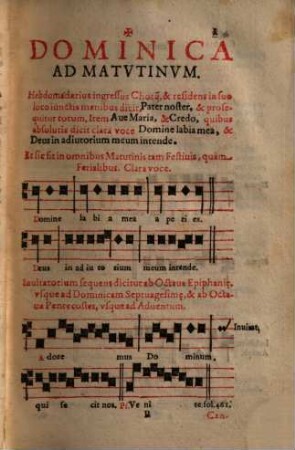 DOMINICA
AD MATVTINVM.
Hebdomadarius ingressus Chorũ, & residens in suo
loco iunctis manibus dicit Pater noster, & prose-
quitur totum, Item Aue Maria, & Credo, quibus
absolutis dicit clara voce Domine labia mea, &
Deus in adiutorium meum intende.
Et sic fit in omnibus Matutinis tam Festiuis, quàm
Ferialibus. Clara voce.
Domine la bi a mea a pe ri es.
Deus in ad iu to rium meum intende.
Inuitatorium sequens dicitur ab Octaua Epiphaniæ
vsque ad Dominicam Septuagesimę, & ab Octa-
ua Pentecostes, vsque ad Aduentum.
Inuitat.
A dore mus Do minum,
qui fe cit nos. Ps. Ve ni te. fol. 462.
Can-